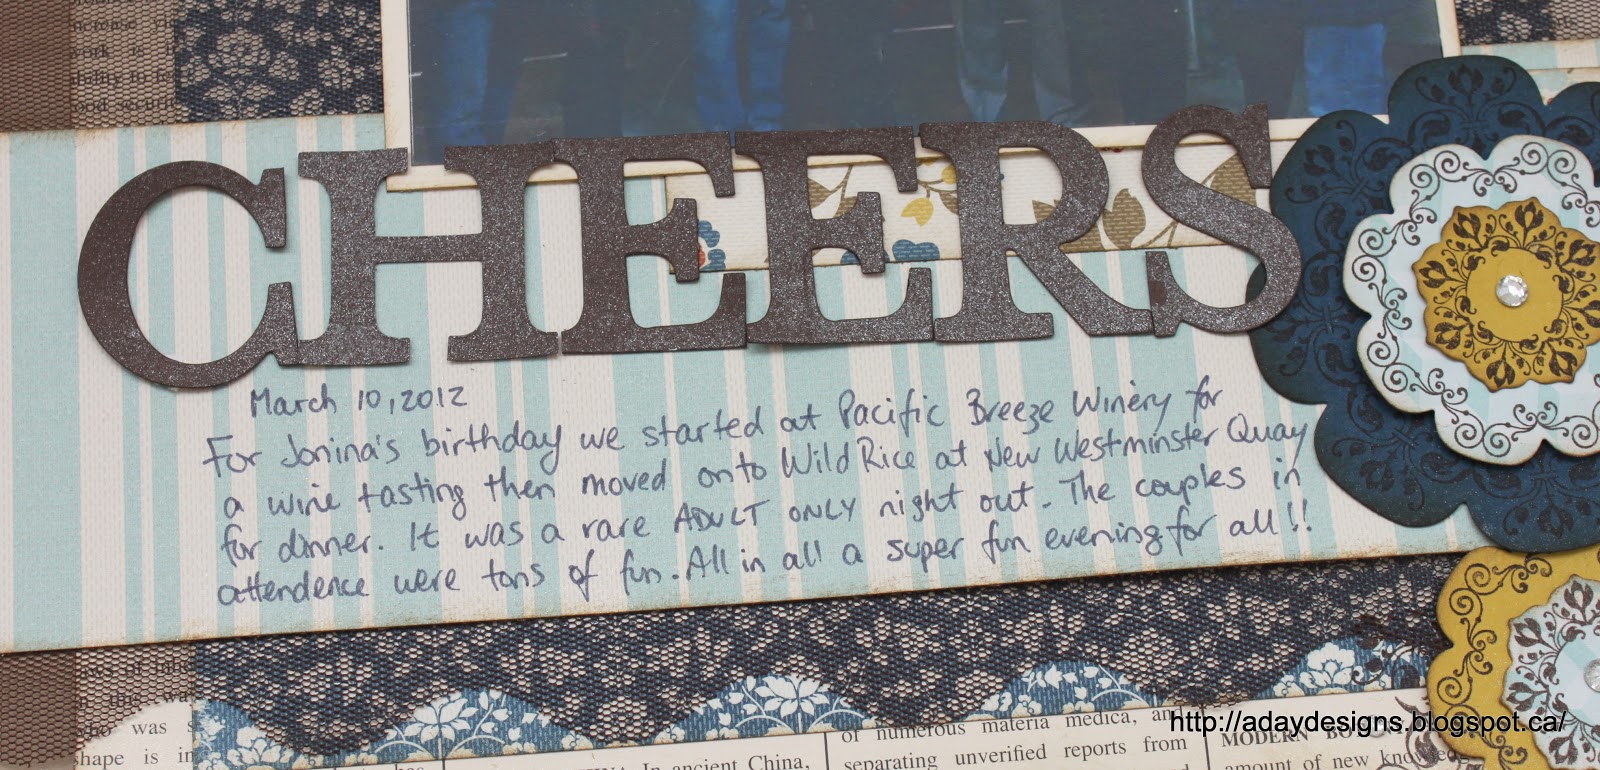 increase
work is
ability to fe
good securi
CHEERS
March 10, 2012
For Jonina's birthday we started at Pacific Breeze Winery for
a wine tasting then moved onto Wild Rice at New Westminster Quay
for dinner. It was a rare ADULT ONLY night out. The couples in
attendence were tons of fun. All in all a super fun evening for all!!
who was s
shape is in
In ancient China,
of numerous materia medica, and
separating unverified reports from
MODERN
amount of new knowledge
http://adaydesigns.blogspot.ca/